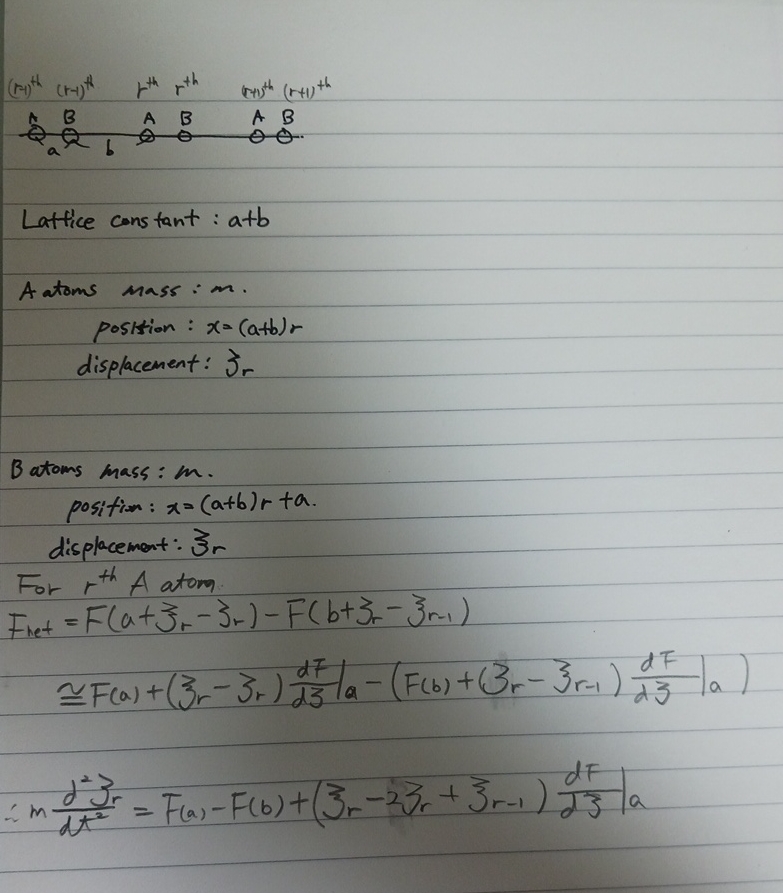 (r-1)^th (r-1)^th r^th r^th (r+1)^th (r+1)^th
A B A B A B
a b
Lattice constant : a+b
A atoms mass : m.
position : x=(a+b)r
displacement : ξ_r
B atoms mass : m.
position : x=(a+b)r+a.
displacement : ξ_r
For r^th A atom
F_net = F(a+ξ_r-ξ_r)-F(b+ξ_r-ξ_r-1)
≅F(a)+(ξ_r-ξ_r) dF/dξ|a-(F(b)+(ξ_r-ξ_r-1) dF/dξ|a)
∴ m d²ξ_r/dt² = F(a)-F(b)+(ξ_r-2ξ_r+ξ_r-1) dF/dξ|a